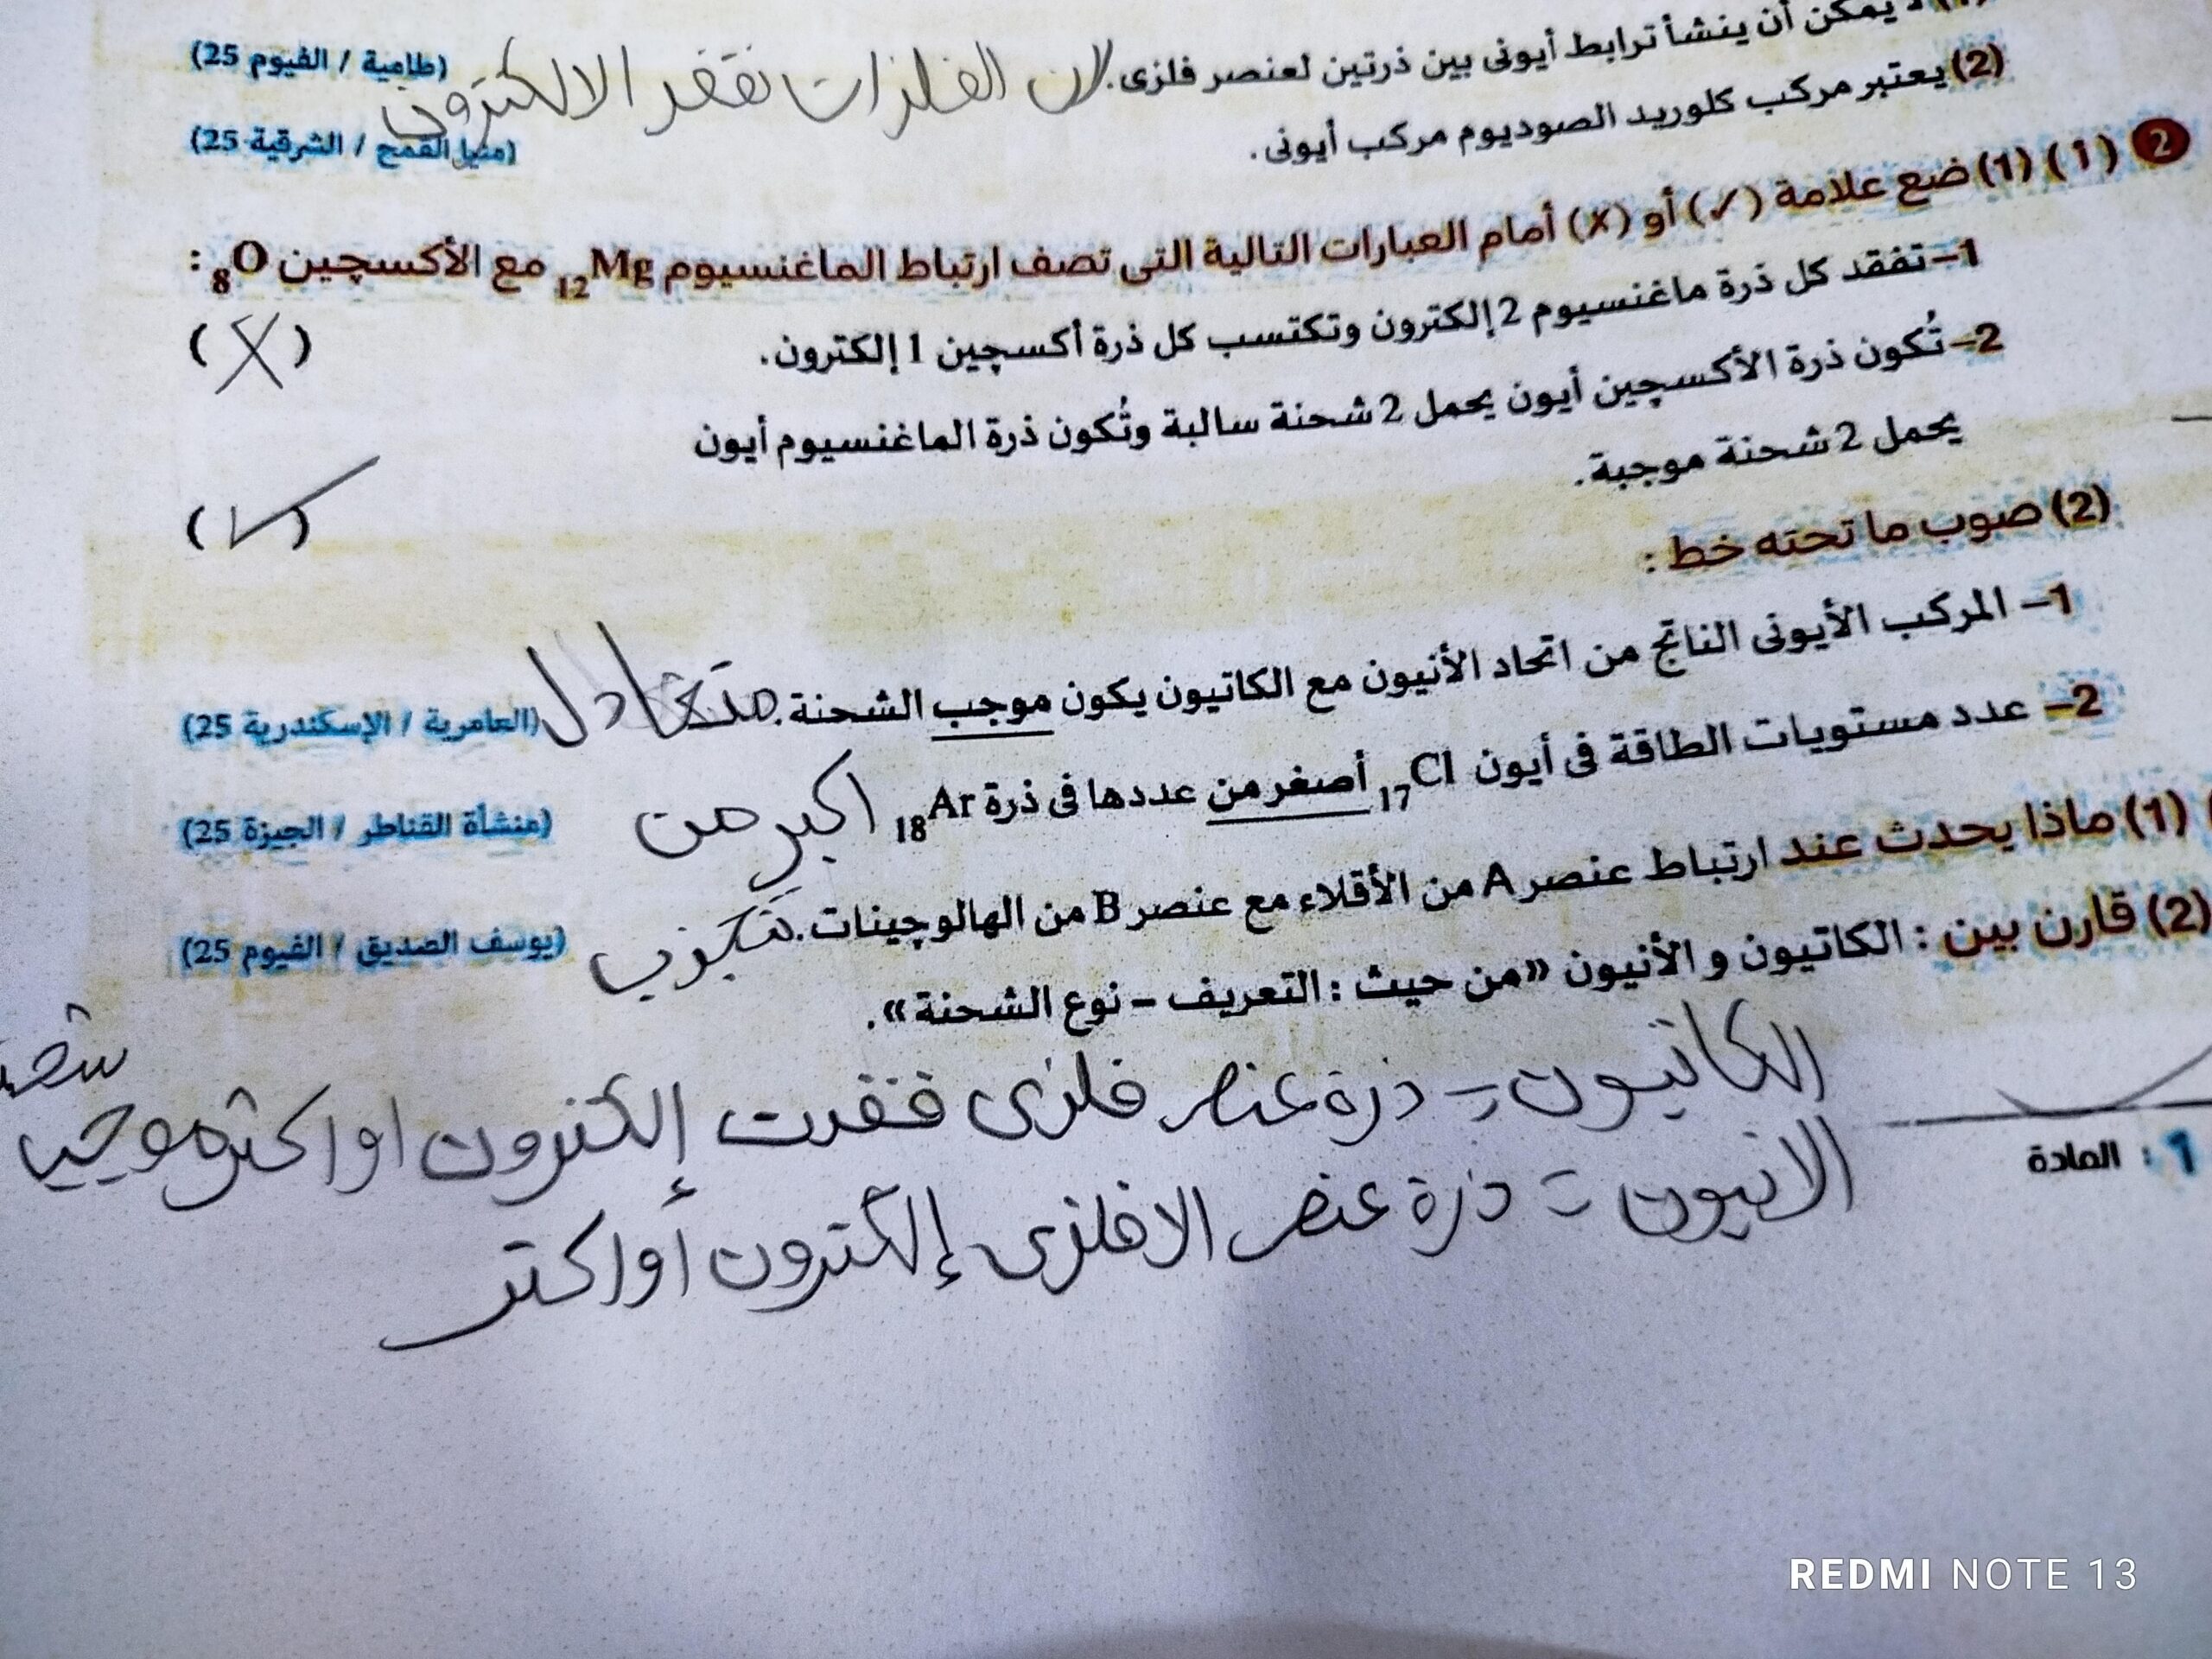 لا يمكن أن ينشأ ترابط أيونى بين ذرتين لعنصر فلزى. لان الفلزات تفقد الالكترون (طامية / الفيوم 25)
(2) يعتبر مركب كلوريد الصوديوم مركب أيونى. (منيا القمح / الشرقية 25)
2 (1) (1) ضع علامة (✓) أو (✗) أمام العبارات التالية التى تصف ارتباط الماغنسيوم ₁₂Mg مع الأكسچين ₈O :
1- تفقد كل ذرة ماغنسيوم 2 إلكترون وتكتسب كل ذرة أكسچين 1 إلكترون. (X)
2- تُكون ذرة الأكسچين أيون يحمل 2 شحنة سالبة وتُكون ذرة الماغنسيوم أيون
يحمل 2 شحنة موجبة. (✓)
(2) صوب ما تحته خط :
1- المركب الأيونى الناتج من اتحاد الأنيون مع الكاتيون يكون موجب الشحنة. متعادل (العامرية / الإسكندرية 25)
2- عدد مستويات الطاقة فى أيون ₁₇Cl أصغر من عددها فى ذرة ₁₈Ar اكبر من (منشأة القناطر / الجيزة 25)
(1) ماذا يحدث عند ارتباط عنصر A من الأقلاء مع عنصر B من الهالوچينات. (يوسف الصديق / الفيوم 25)
(2) قارن بين : الكاتيون و الأنيون «من حيث : التعريف – نوع الشحنة».
الكاتيون = ذرة عنصر فلزى فقدت إلكترون او اكثر
الانيون = ذرة عنصر الافلزى إلكترون أو اكتر
1 : المادة
REDMI NOTE 13